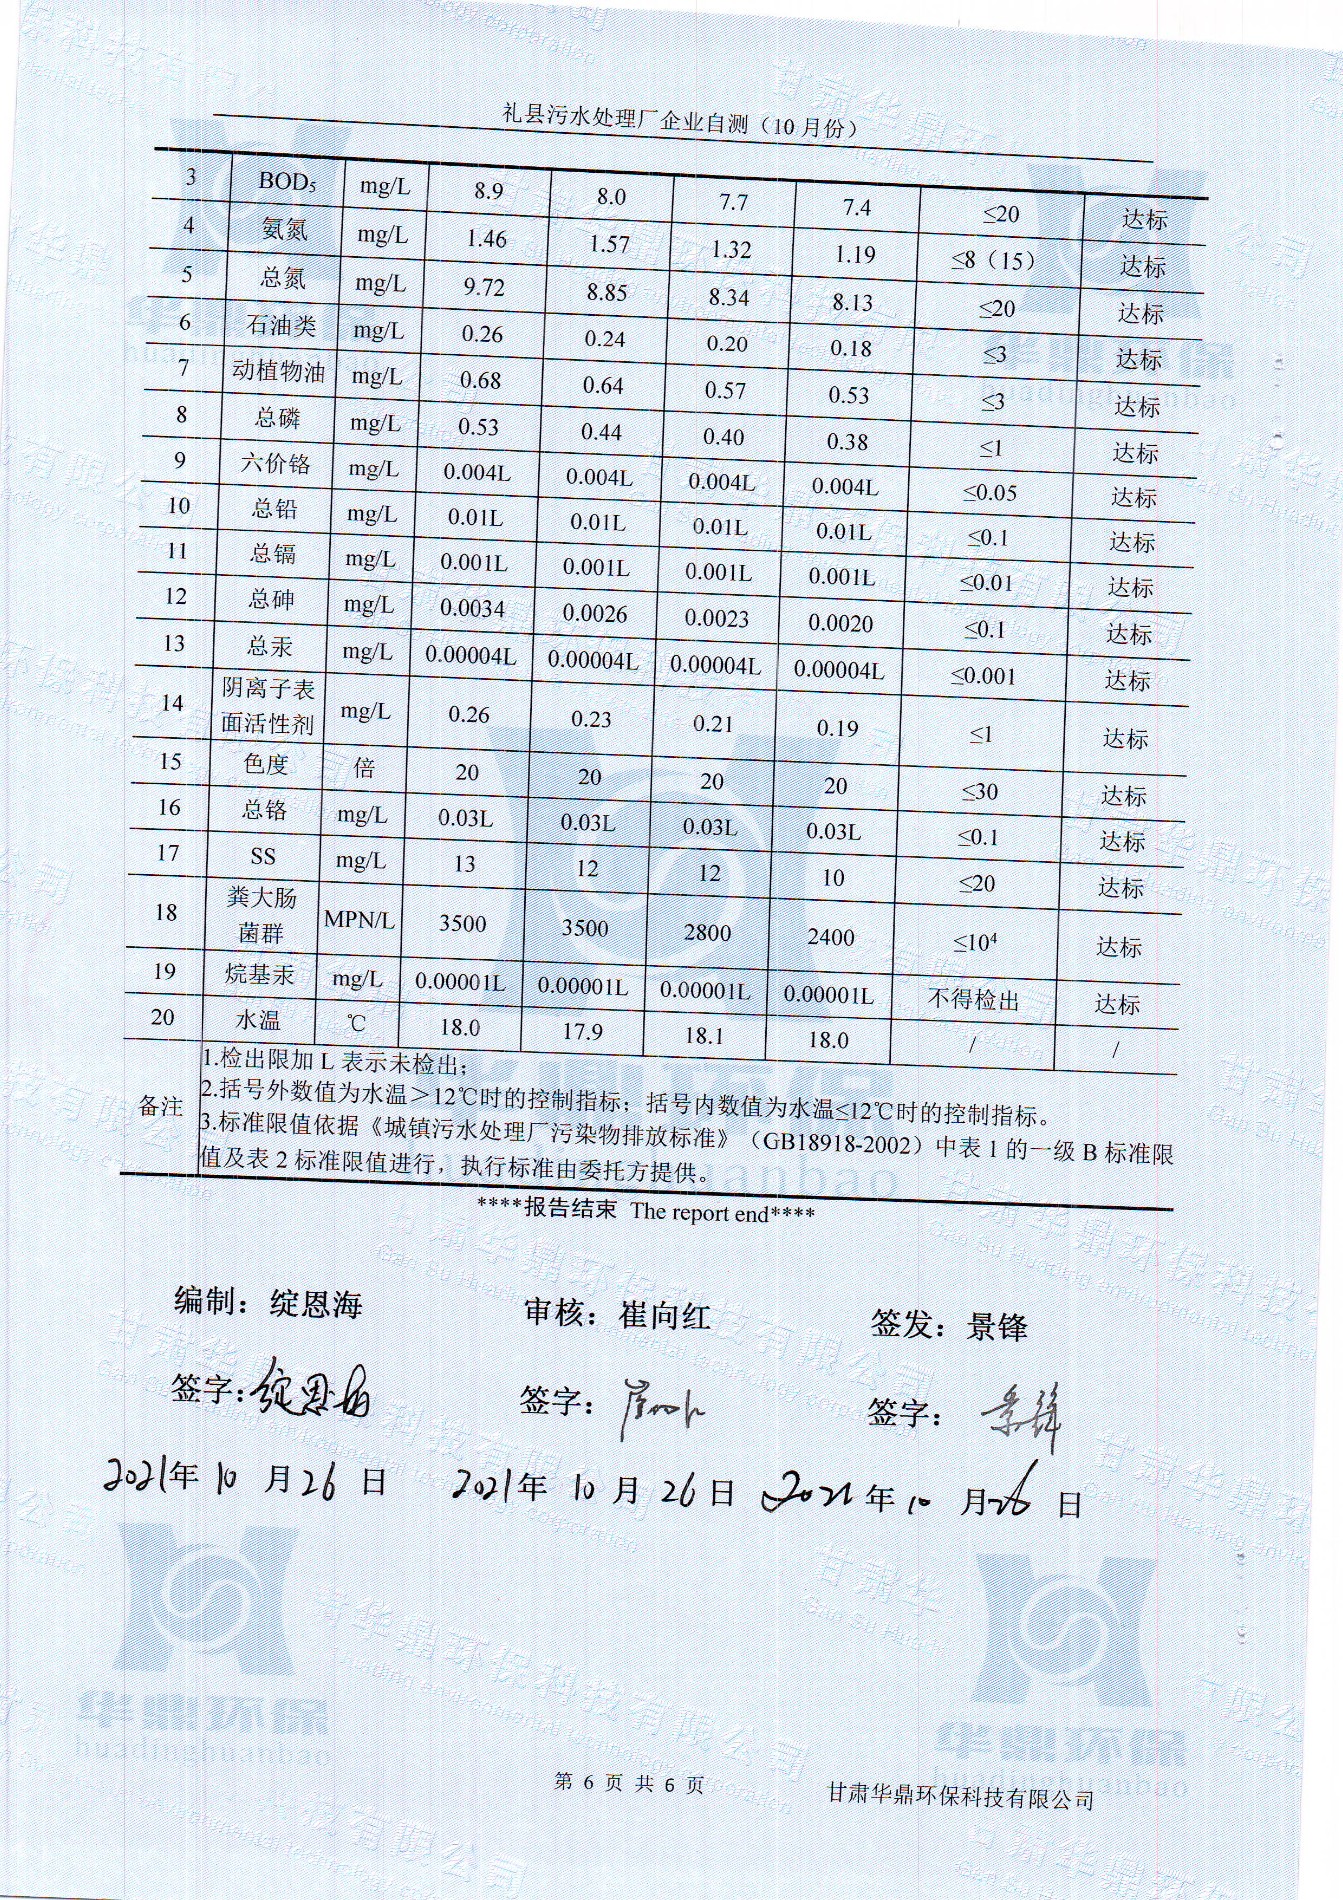 礼县污水处理厂企业自测（10月份）
3 BOD₅ mg/L 8.9 8.0 7.7 7.4 ≤20 达标
4 氨氮 mg/L 1.46 1.57 1.32 1.19 ≤8（15） 达标
5 总氮 mg/L 9.72 8.85 8.34 8.13 ≤20 达标
6 石油类 mg/L 0.26 0.24 0.20 0.18 ≤3 达标
7 动植物油 mg/L 0.68 0.64 0.57 0.53 ≤3 达标
8 总磷 mg/L 0.53 0.44 0.40 0.38 ≤1 达标
9 六价铬 mg/L 0.004L 0.004L 0.004L 0.004L ≤0.05 达标
10 总铅 mg/L 0.01L 0.01L 0.01L 0.01L ≤0.1 达标
11 总镉 mg/L 0.001L 0.001L 0.001L 0.001L ≤0.01 达标
12 总砷 mg/L 0.0034 0.0026 0.0023 0.0020 ≤0.1 达标
13 总汞 mg/L 0.00004L 0.00004L 0.00004L 0.00004L ≤0.001 达标
14 阴离子表面活性剂 mg/L 0.26 0.23 0.21 0.19 ≤1 达标
15 色度 倍 20 20 20 20 ≤30 达标
16 总铬 mg/L 0.03L 0.03L 0.03L 0.03L ≤0.1 达标
17 SS mg/L 13 12 12 10 ≤20 达标
18 粪大肠菌群 MPN/L 3500 3500 2800 2400 ≤10⁴ 达标
19 烷基汞 mg/L 0.00001L 0.00001L 0.00001L 0.00001L 不得检出 达标
20 水温 ℃ 18.0 17.9 18.1 18.0 / /
备注
1.检出限加 L 表示未检出；
2.括号外数值为水温＞12℃时的控制指标；括号内数值为水温≤12℃时的控制指标。
3.标准限值依据《城镇污水处理厂污染物排放标准》（GB18918-2002）中表 1 的一级 B 标准限
值及表 2 标准限值进行，执行标准由委托方提供。
****报告结束 The report end****
编制：绽恩海 审核：崔向红 签发：景锋
签字：绽恩海 签字：崔向红 签字：景锋
2021年 10 月 26 日 2021年 10 月 26 日 2021年 10 月 26 日
华鼎环保
huadinghuanbao
第 6 页 共 6 页
甘肃华鼎环保科技有限公司